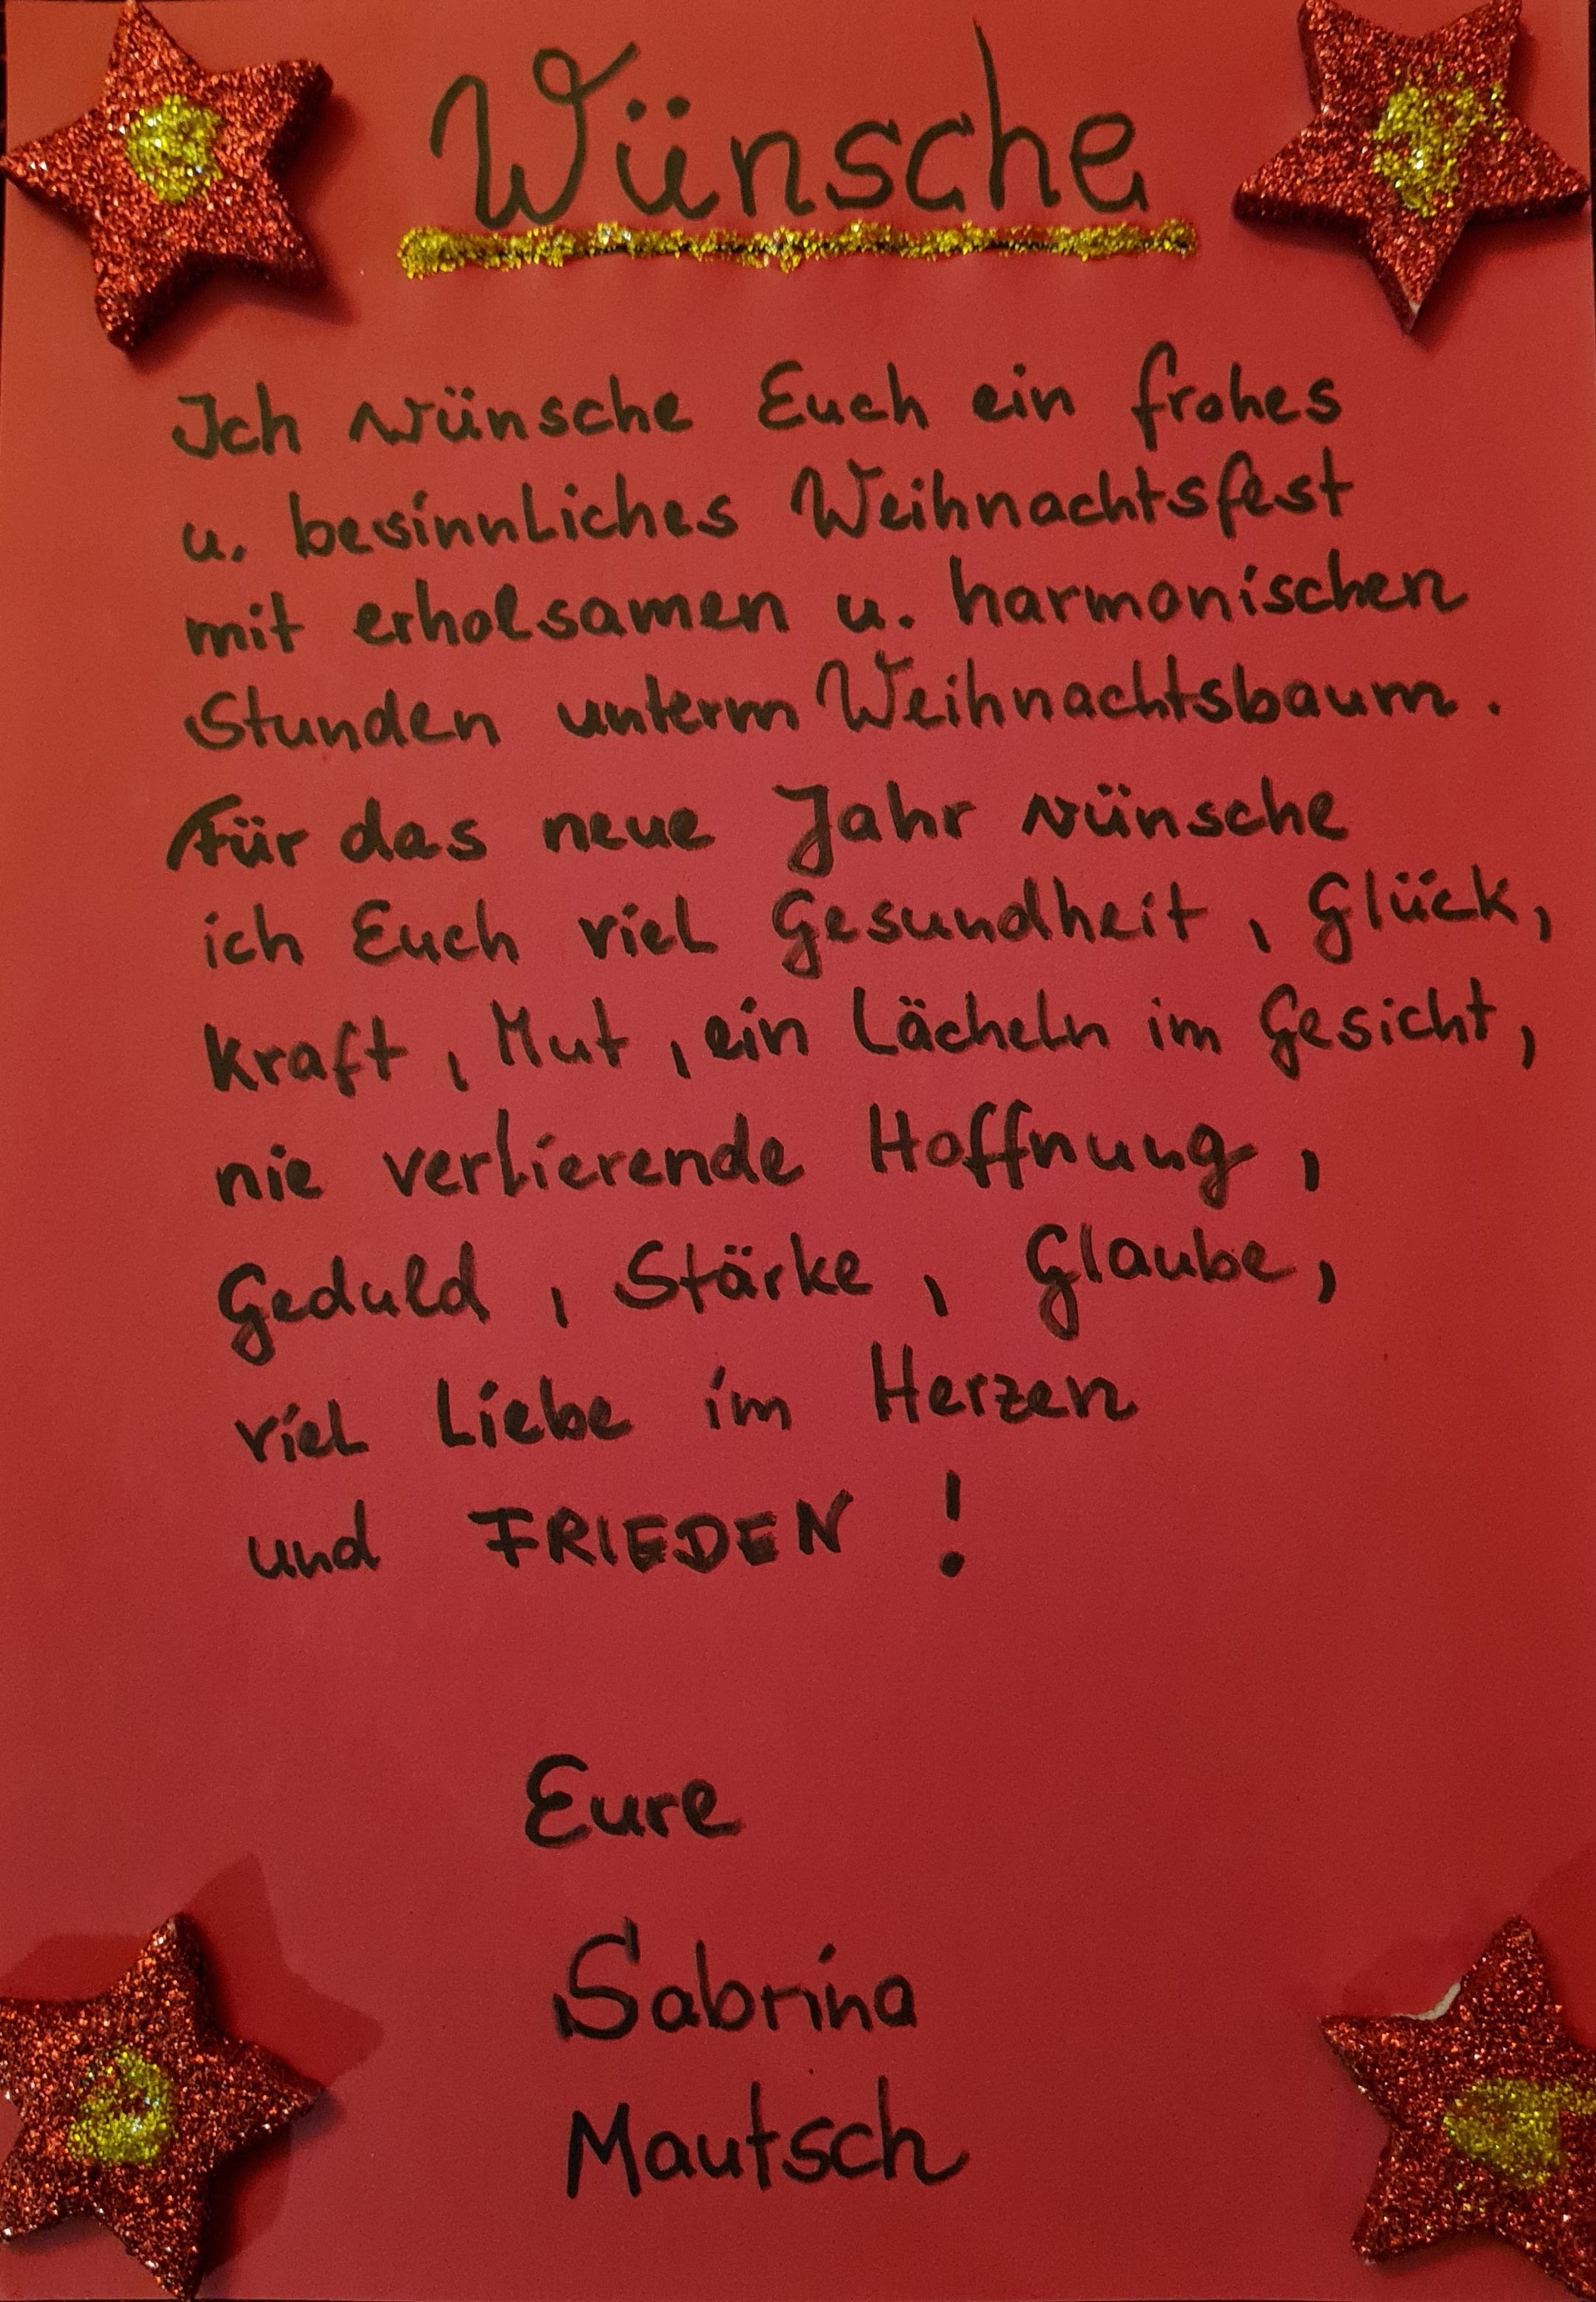 Wünsche
Ich wünsche Euch ein frohes
u. besinnliches Weihnachtsfest
mit erholsamen u. harmonischen
Stunden unterm Weihnachtsbaum.
Für das neue Jahr wünsche
ich Euch viel Gesundheit, Glück,
Kraft, Mut, ein Lächeln im Gesicht,
nie verlierende Hoffnung,
Geduld, Stärke, Glaube,
viel Liebe im Herzen
und FRIEDEN!
Eure
Sabrina
Mautsch